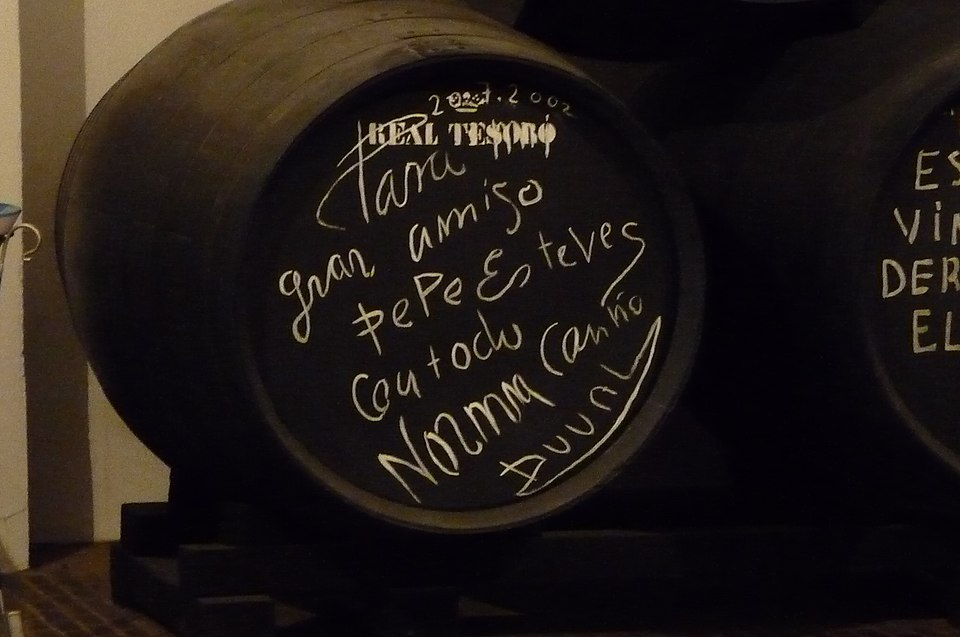 2 oct. 2002
REAL TESORO
Para mi
gran amigo
PePe Esteves
con todo
Cariño
NORMA
DUVAL
ES
VIN
DER
EL